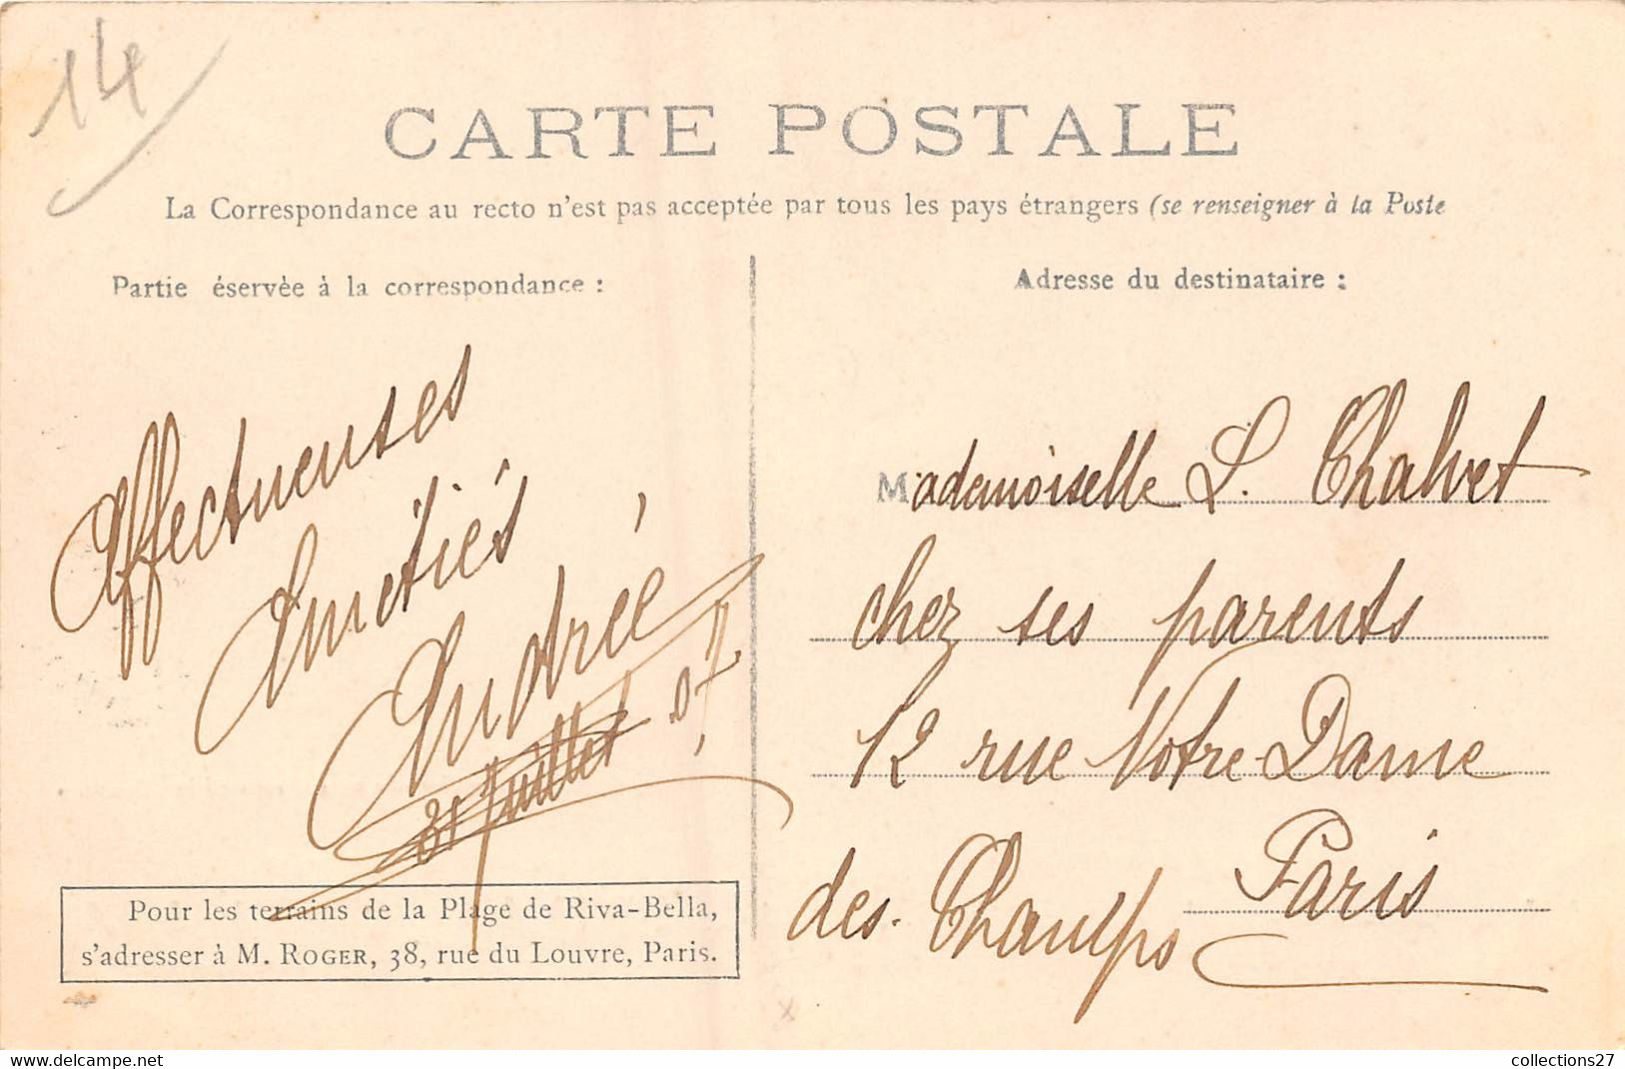 14
CARTE POSTALE
La Correspondance au recto n'est pas acceptée par tous les pays étrangers (se renseigner à la Poste
Partie éservèe à la correspondance :
Affectueuses
Amitiés
Andrée
31 Juillet 07
Pour les terrains de la Plage de Riva-Bella,
s'adresser à M. ROGER, 38, rue du Louvre, Paris.
Adresse du destinataire :
Mademoiselle L. Chalvet
chez ses parents
12 rue Notre-Dame
des-Champs Paris
www.delcampe.net
collections27